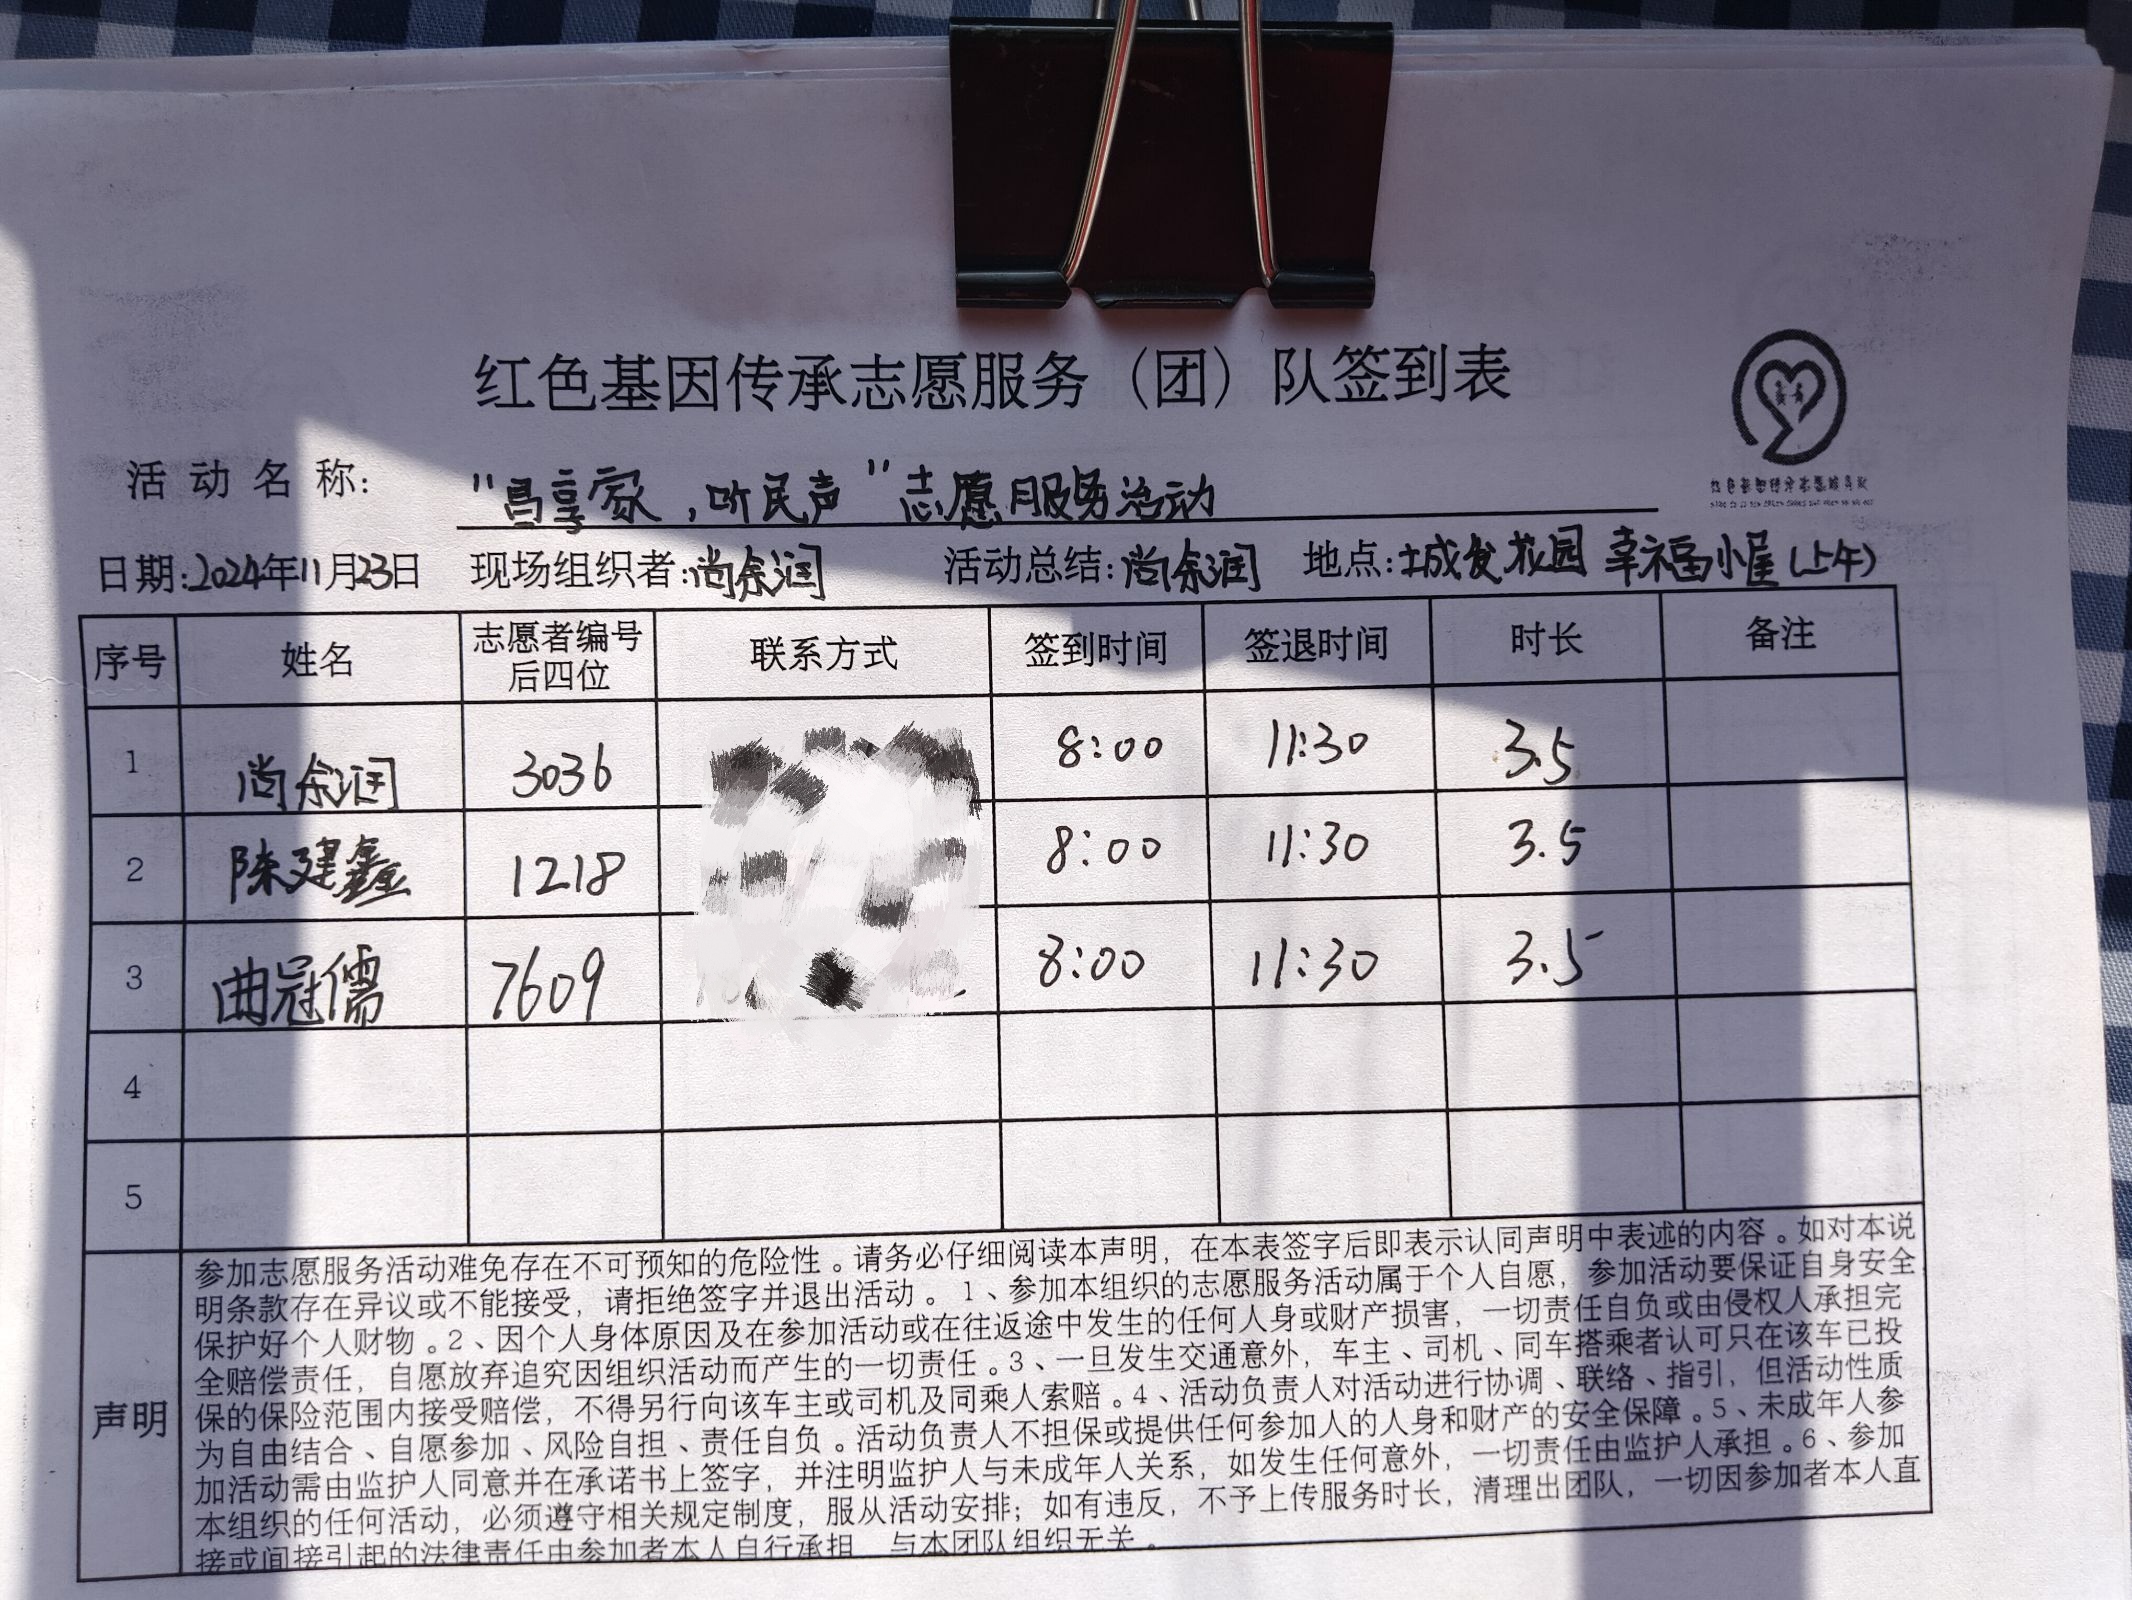 红色基因传承志愿服务（团）队签到表
活动名称: "昌享家,听民声"志愿服务活动
日期:2024年11月23日 现场组织者:尚余润 活动总结:尚余润 地点:城发花园 幸福小屋(上午)
序号 姓名 志愿者编号后四位 联系方式 签到时间 签退时间 时长 备注
1 尚余润 3036 8:00 11:30 3.5
2 陈建鑫 1218 8:00 11:30 3.5
3 曲冠儒 7609 8:00 11:30 3.5
4
5
声明
参加志愿服务活动难免存在不可预知的危险性。请务必仔细阅读本声明，在本表签字后即表示认同声明中表述的内容。如对本说
明条款存在异议或不能接受，请拒绝签字并退出活动。1、参加本组织的志愿服务活动属于个人自愿，参加活动要保证自身安全
保护好个人财物。2、因个人身体原因及在参加活动或在往返途中发生的任何人身或财产损害，一切责任自负或由侵权人承担完
全赔偿责任，自愿放弃追究因组织活动而产生的一切责任。3、一旦发生交通意外，车主、司机、同车搭乘者认可只在该车已投
保的保险范围内接受赔偿，不得另行向该车主或司机及同乘人索赔。4、活动负责人对活动进行协调、联络、指引，但活动性质
为自由结合、自愿参加、风险自担、责任自负。活动负责人不担保或提供任何参加人的人身和财产的安全保障。5、未成年人参
加活动需由监护人同意并在承诺书上签字，并注明监护人与未成年人关系，如发生任何意外，一切责任由监护人承担。6、参加
本组织的任何活动，必须遵守相关规定制度，服从活动安排；如有违反，不予上传服务时长，清理出团队，一切因参加者本人直
接或间接引起的法律责任由参加者本人自行承担，与本团队组织无关。